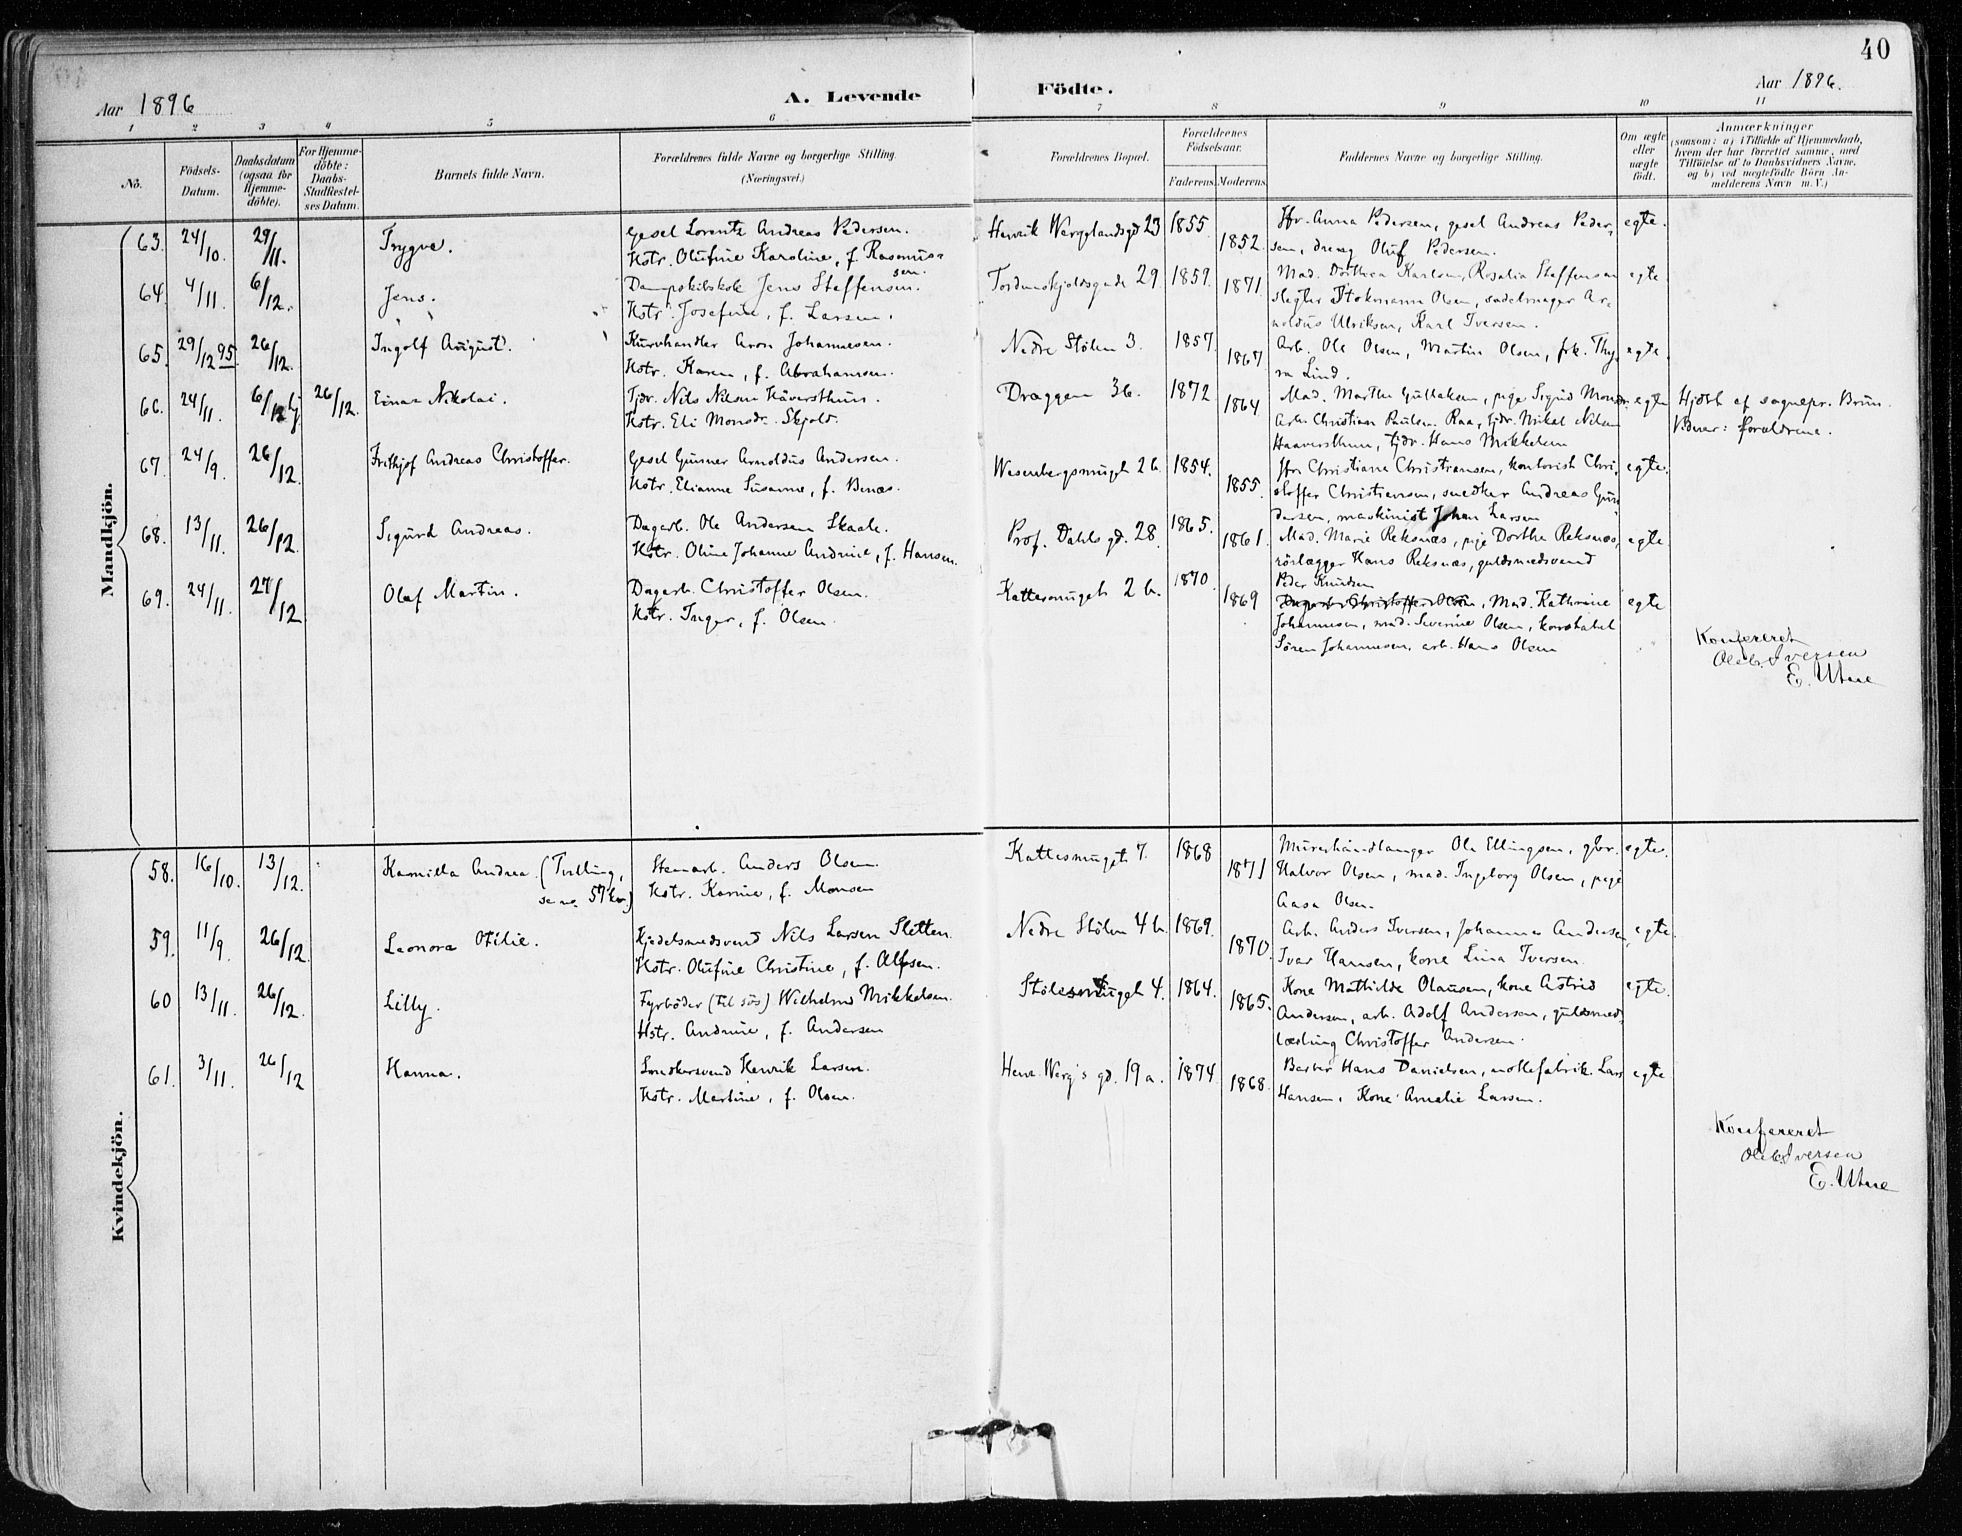 40
Aar 1896
A. Levende
Födte.
Aar 1896.
1 2 3 4 5 6 7 8 9 10 11
No.
Födsels-Datum.
Daabsdatum (ogsaa for Hjemme-döbte).
For Hjemme-döbte: Daabs-Stadfæstel-ses Datum.
Barnets fulde Navn.
Forældrenes fulde Navne og borgerlige Stilling. (Næringsvei.)
Forældrenes Bopæl.
Forældrenes Födselsaar.
Faderens. Moderens.
Faddernes Navne og borgerlige Stilling.
Om ægte eller uægte födt.
Anmærkninger
(saasom: a) i Tilfælde af Hjemmedaab, hvem der har forrettet samme, med Tilföielse af to Daabsvidners Navne, og b) ved uægtefödte Börn An-melderens Navn m. V.)
Mandkjön.
63. 24/10. 29/11. Trygve. Gesel Lorentz Andreas Pedersen. Henrik Wergelandsgd 23 1855. Jfr. Anna Pedersen, gesel Andreas Peder- egte.
Hstr. Olufine Karoline, f. Rasmus-sen. 1852. sen, dreng Oluf Pedersen.
64. 4/11. 6/12. Jens. Dampskibskok Jens Steffensen. Tordenskjoldsgade 29 1859. Mad. Dorthea Karlsen, Rosalie Steffensen egte
Hstr. Josefine, f. Larsen. 1871. slegter Stokmann Olsen, sadelmager Ar-
noldus Ulriksen, Karl Iversen.
65. 29/12 95. 26/12. Ingolf August. Kurvhandler Aron Johannesen. Nedre Stölen 3. 1857. Arb. Ole Olsen, Martin Olsen, frk. Thy- egte.
Hstr. Karen, f. Abrahamsen. 1867 ra Lind.
66. 24/11. 6/12 hj 26/12. Einar Nikolai. Tjdr. Nils Nilsen Håversthun. Dræggen 36. 1872 Mad. Marthe Gullaksen, pige Sigrid Monsdr. egte Hjdbt af sognepr. Brun.
Hstr. Eli Monsdr. Skjold. 1864 Arb. Christian Paulsen Raa, tjdr. Mikal Nilsen Vidner: forældrene.
Haaversthun, tjdr. Hans Mikkelsen
67. 24/9. 26/12. Frithjof Andreas Christoffer. Gesel Gunner Arnoldus Andersen. Wesenbergsmuget 2 b. 1854. Jfr. Christiane Christiansen, kontorist Chri- egte.
Hstr. Elianne Susanne, f. Benas. 1855. stoffer Christiansen, snedker Andreas Gun-
dersen, maskinist Johan Larsen
68. 13/11. 26/12. Sigurd Andreas. Dagarb. Ole Andersen Skaale. Prof. Dahls gd. 28. 1865. Mad. Marie Reksnæs, pige Dorthe Reksnæs, egte
Hstr. Oline Johanne Andrine, f. Hansen. 1861. rörlægger Hans Reksnæs, guldsmedsvend
Peder Knudsen
69. 24/11. 27/12 Olaf Martin. Dagarb. Christoffer Olsen. Kattesmuget 2 b. 1870 Dagarb. Christoffer Olsen, Mad. Kathrine egte
Hstr. Inger, f. Olsen. 1869 Johannesen, mad. Severine Olsen, konstabel
Sören Johannesen, arb. Hans Olsen
Konfereret
Iversen
E. Utne
Kvindekjön.
58. 16/10. 13/12. Kamilla Andrea. (Tvilling, se no. 57 kv.) Stenarb. Anders Olsen. Kattesmuget 7. 1868 Murerhandlanger Ole Ellingsen, gbr. egte.
Hstr. Karine, f. Monsen 1871 Halvor Olsen, mad. Ingeborg Olsen, pige
Aasa Olsen.
59. 11/9. 26/12. Leonora Otilie. Kjedelsmedsvend Nils Larsen Sletten. Nedre Stölen 4 b. 1869. Arb. Anders Iversen, Johannes Andersen, egte.
Hstr. Olufine Christine, f. Olsen. 1870. Ivar Hansen, kone Lina Iversen.
60 13/11. 26/12. Lilly. Fyrböder (til sös) Wilhelm Mikkelsen. Stölesmuget 4. 1864. Kone Mathilde Olausen, kone Astrid egte.
Hstr. Andrine, f. Andersen 1865. Andersen, arb. Adolf Andersen, guldsmed-
lærling Christoffer Andersen.
61. 3/11. 26/12 Hanna. Snedkersvend Henrik Larsen. Henr. Werg's gd. 19 a. 1874. Barber Hans Danielsen, Lars egte
Hstr. Martine, f. Olsen. 1868. Hansen, Kone Amalie Larsen.
Konfereret
Iversen
E. Utne